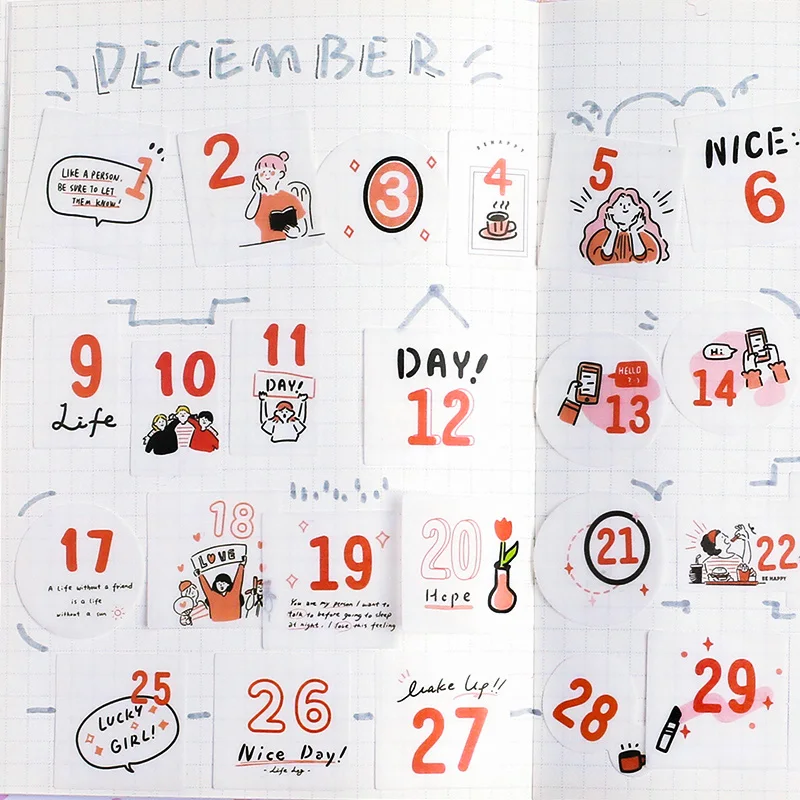 DECEMBER
LIKE A PERSON,
BE SURE TO LET
THEM KNOW!
1
2
3
4
5
NICE:
6
9
Life
10
11
DAY!
DAY!
12
HELLO
13
Hi
14
17
A life without a friend
is a life
without a sun
18
LOVE
19
You are my person I want to
talk to before going to sleep
at night. I love this feeling
20
Hope
21
22
BE HAPPY
25
LUCKY
GIRL!
26
Nice Day!
27
28
29